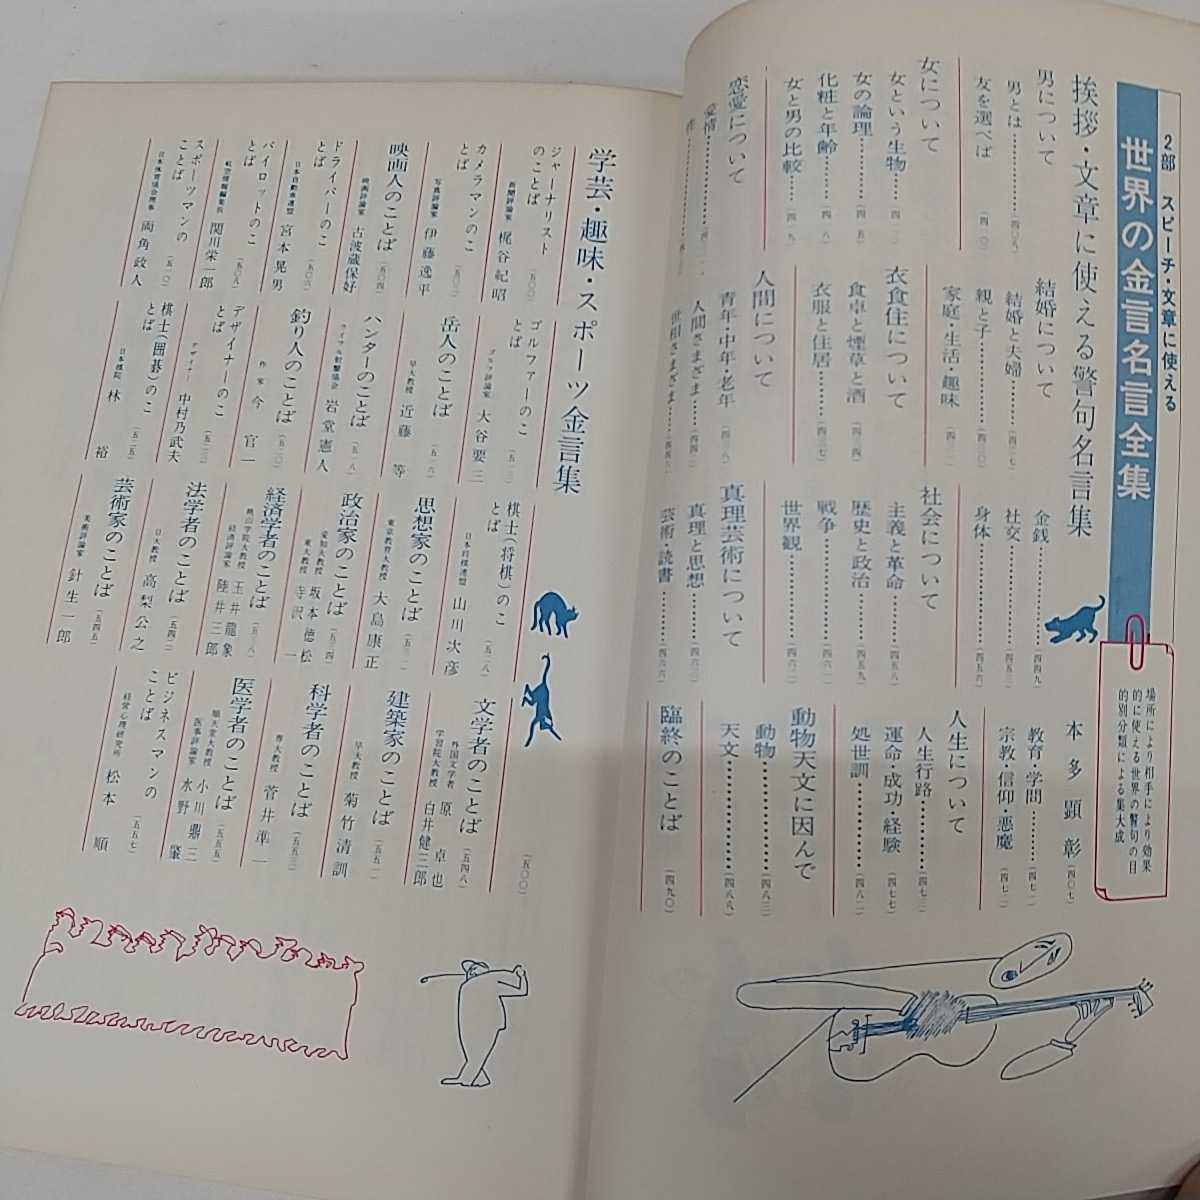 2部 スピーチ・文章に使える
世界の金言名言全集
場所により相手により効果
的に使える世界の警句の目
的別分類による集大成
挨拶・文章に使える警句名言集
本多顕彰(四〇七)
男について
男とは(四〇九)
友を選べば
女について
女という生物
女の論理
化粧と年齢
女と男の比較
恋愛について
愛情
結婚について
結婚と夫婦
親と子
家庭・生活・趣味
衣食住について
食卓と煙草と酒
衣服と住居
人間について
青年・中年・老年
人間さまざま
世相さまざま
金銭(四四九)
社交(四五三)
身体(四五六)
社会について
主義と革命(四五八)
歴史と政治(四五九)
戦争(四六一)
世界観(四六二)
真理芸術について
真理と思想
芸術・読書(四六六)
教育・学問(四七一)
宗教・信仰・悪魔(四七二)
人生について
人生行路(四七三)
運命・成功・経験(四七七)
処世訓(四八二)
動物天文に因んで
動物(四八三)
天文(四八八)
臨終のことば(四九〇)
学芸・趣味・スポーツ金言集(五〇〇)
ジャーナリストのことば
新聞評論家 梶谷紀昭
カメラマンのことば
写真評論家 伊藤逸平
映画人のことば(五〇四)
映画評論家 古波蔵保好
ドライバーのことば(五〇六)
日本自動車連盟 宮本晃男
パイロットのことば(五〇八)
航空情報編集長 関川栄一郎
スポーツマンのことば(五一〇)
日本体育協会理事 両角政人
ゴルファーのことば(五一三)
ゴルフ評論家 大谷要三
岳人のことば(五一六)
早大教授 近藤等
ハンターのことば(五一八)
ライフル射撃協会 岩堂憲人
釣り人のことば(五二〇)
作家 今官一
デザイナーのことば
デザイナー 中村乃武夫
棋士(囲碁)のことば(五二五)
日本棋院 林裕
棋士(将棋)のことば(五二八)
日本将棋連盟 山川次彦
思想家のことば
東京教育大教授 大島康正
政治家のことば(五三四)
愛知大教授 坂本徳松
東大教授 寺沢一
経済学者のことば(五三八)
桃山学院大教授 玉井龍象
経済評論家 陸井三郎
法学者のことば(五四二)
日大教授 高梨公之
芸術家のことば(五四五)
美術評論家 針生一郎
文学者のことば(五四八)
外国文学者 原卓也
学習院大教授 白井健三郎
建築家のことば(五五一)
早大教授 菊竹清訓
科学者のことば(五五三)
専大教授 菅井準一
医学者のことば(五五五)
順天堂大教授 小川鼎三
医事評論家 水野肇
ビジネスマンのことば(五五七)
経営心理研究所 松本順